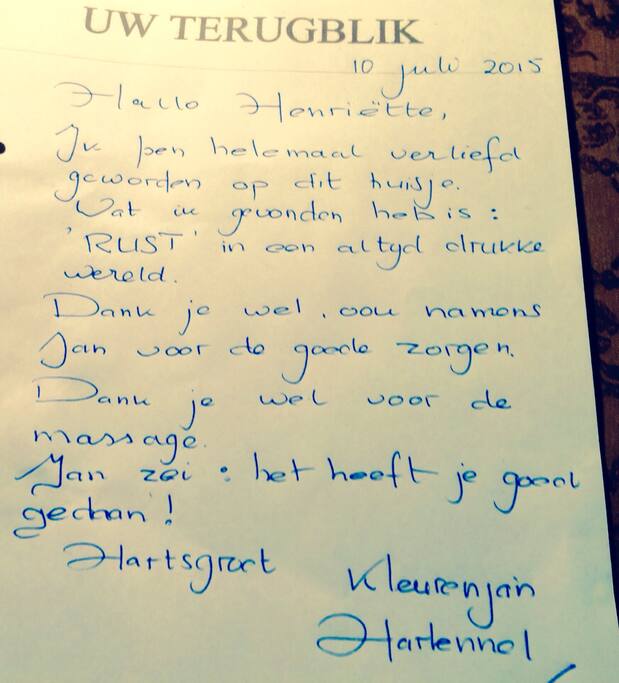 UW TERUGBLIK
10 juli 2015
Hallo Henriëtte,
Ik ben helemaal verliefd
geworden op dit huisje.
Wat ik gevonden heb is :
'RUST' in een altyd drukke
wereld.
Dank je wel, ook namens
Jan voor de goede zorgen.
Dank je wel voor de
massage.
Jan zei : het heeft je goed
gedaan !
Hartsgroet
Kleurenjan
Hartennel